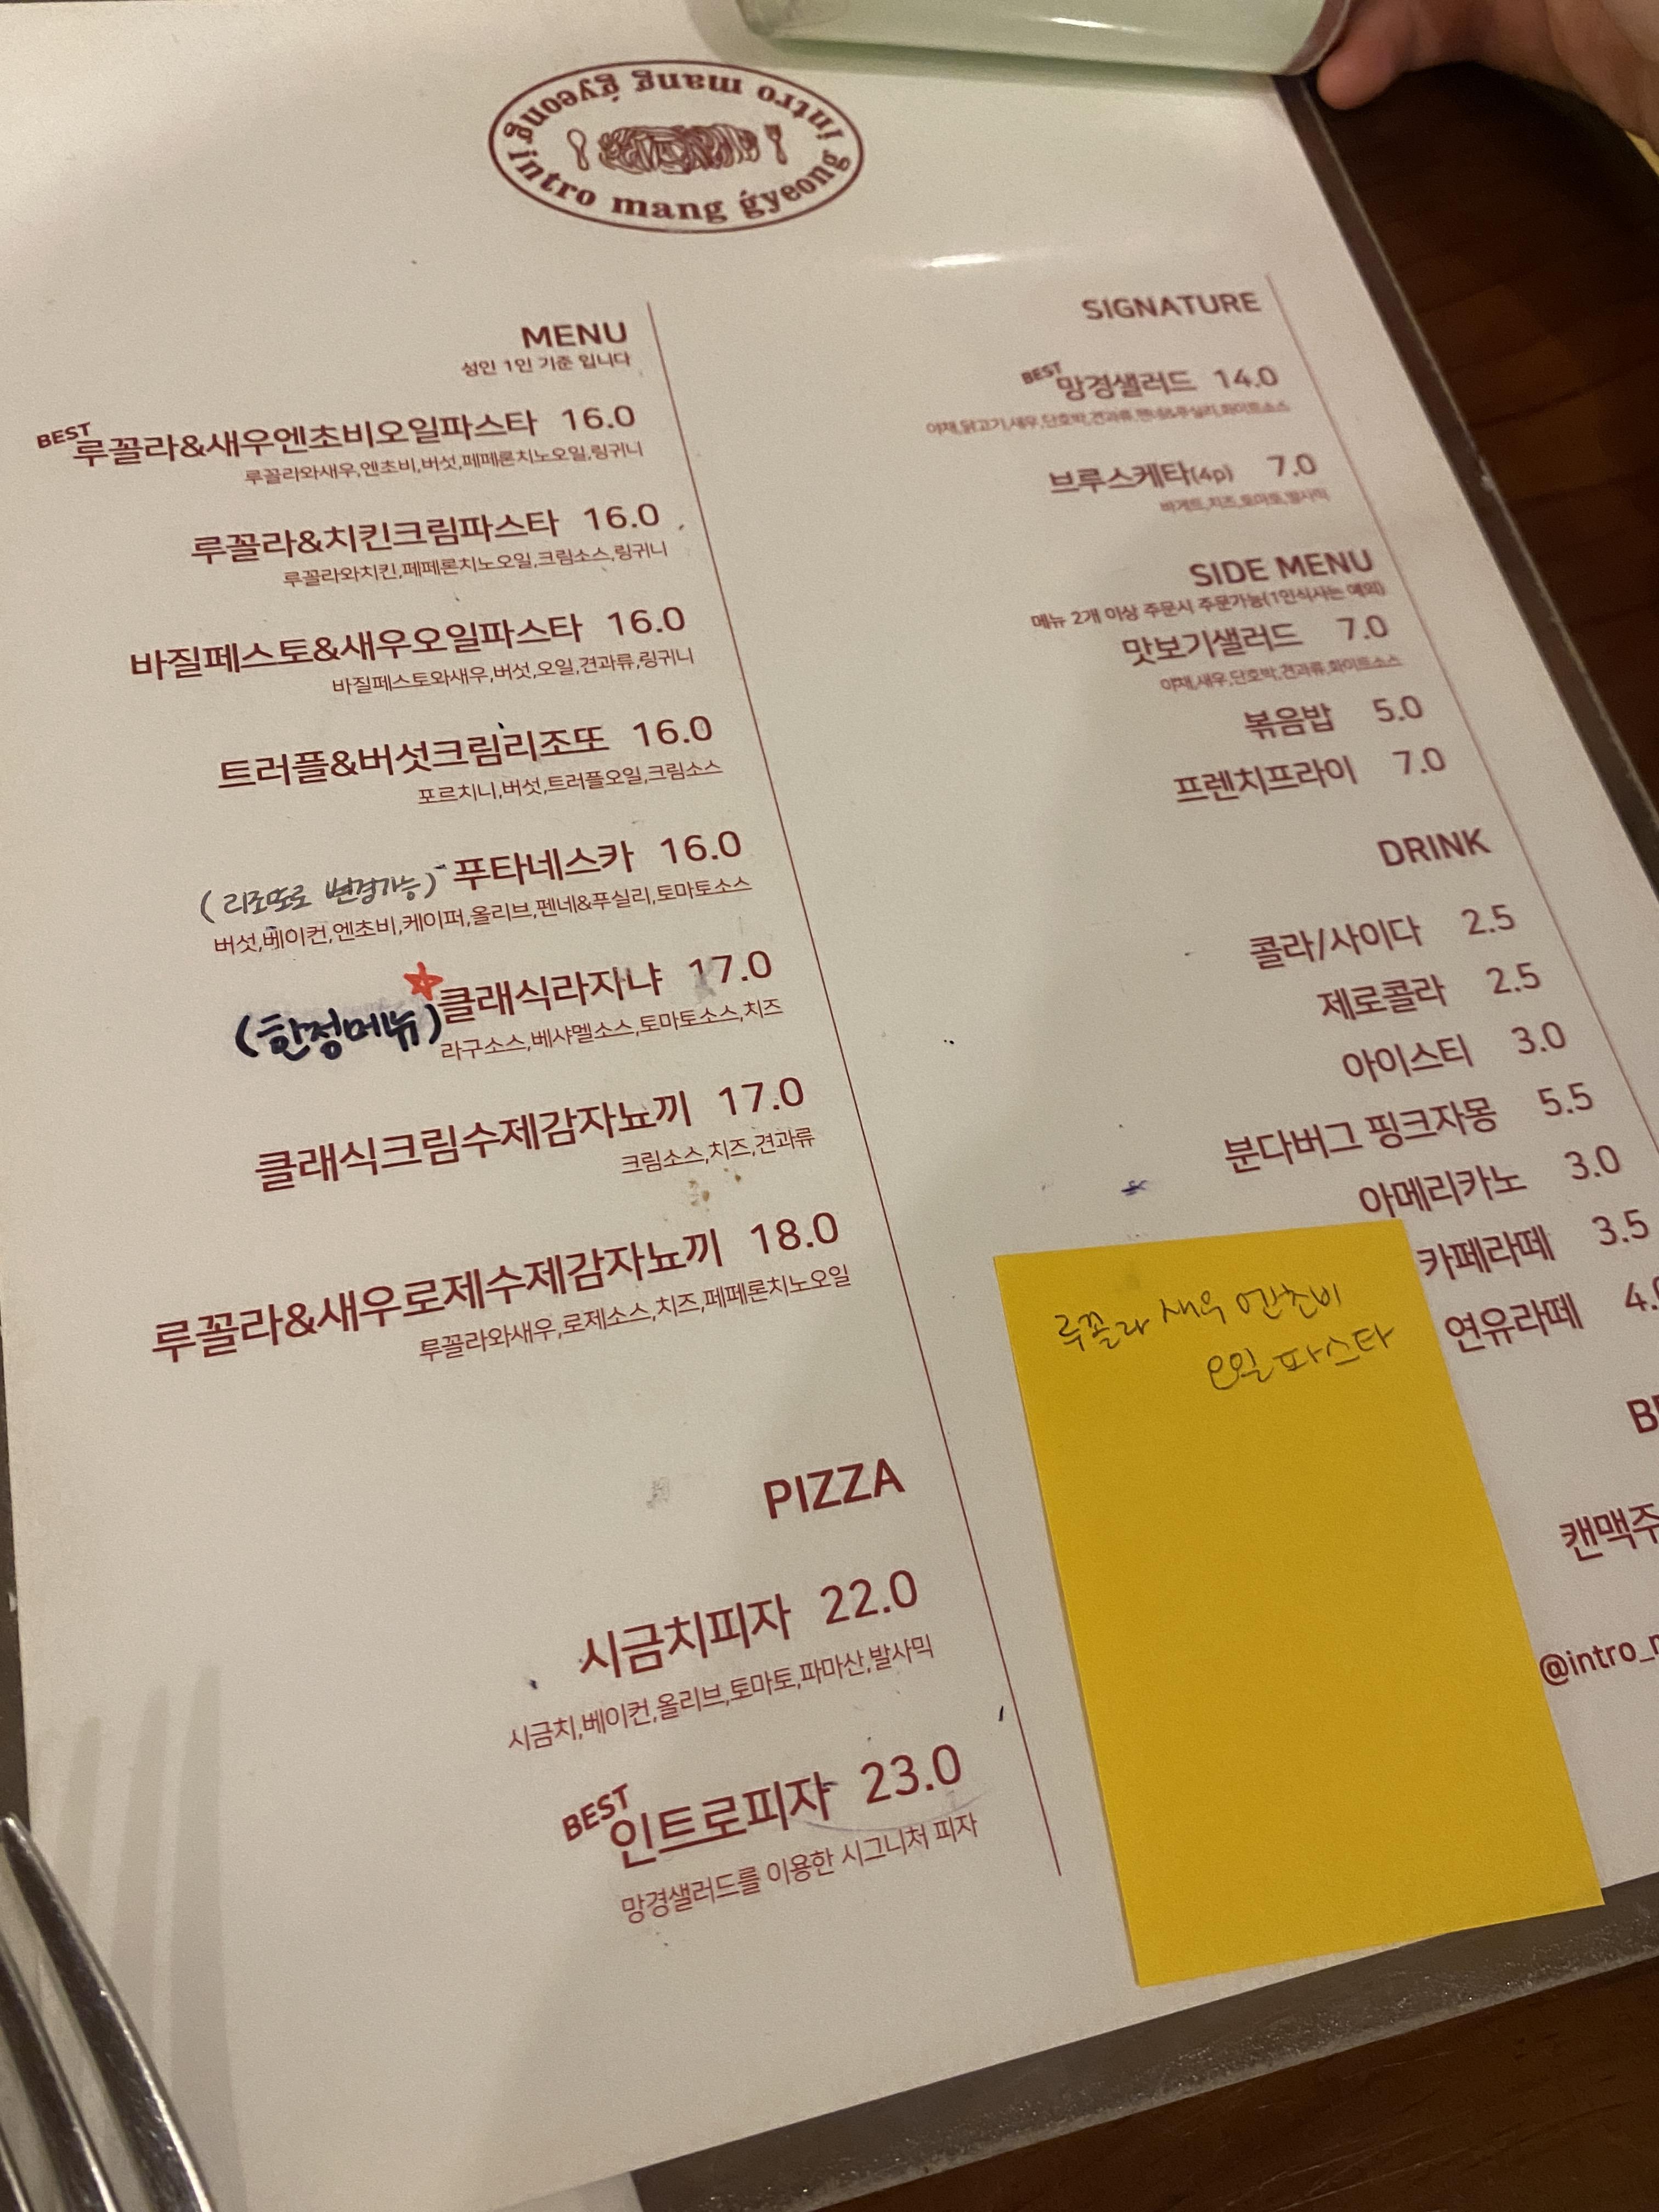 intro mang gyeong
intro mang gyeong
MENU
성인 1인 기준 입니다
BEST
루꼴라&새우엔초비오일파스타 16.0
루꼴라와새우,엔초비,버섯,페페론치노오일,링귀니
루꼴라&치킨크림파스타 16.0
루꼴라와치킨,페페론치노오일,크림소스,링귀니
바질페스토&새우오일파스타 16.0
바질페스토와새우,버섯,오일,견과류,링귀니
트러플&버섯크림리조또 16.0
포르치니,버섯,트러플오일,크림소스
(리조또로 변경가능) 푸타네스카 16.0
버섯,베이컨,엔초비,케이퍼,올리브,펜네&푸실리,토마토소스
클래식라자냐 17.0
(한정메뉴)
라구소스,베샤멜소스,토마토소스,치즈
클래식크림수제감자뇨끼 17.0
크림소스,치즈,견과류
루꼴라&새우로제수제감자뇨끼 18.0
루꼴라와새우,로제소스,치즈,페페론치노오일
PIZZA
시금치피자 22.0
시금치,베이컨,올리브,토마토,파마산,발사믹
BEST
인트로피자 23.0
망경샐러드를 이용한 시그니처 피자
SIGNATURE
BEST
망경샐러드 14.0
야채,닭고기,새우,단호박,견과류,펜네&푸실리,화이트소스
브루스케타(4p) 7.0
바게트,치즈,토마토,발사믹
SIDE MENU
메뉴 2개 이상 주문시 주문가능(1인식사는 예외)
맛보기샐러드 7.0
야채,새우,단호박,견과류,화이트소스
볶음밥 5.0
프렌치프라이 7.0
DRINK
콜라/사이다 2.5
제로콜라 2.5
아이스티 3.0
분다버그 핑크자몽 5.5
아메리카노 3.0
카페라떼 3.5
연유라떼
캔맥주
루꼴라 새우 엔초비
오일 파스타